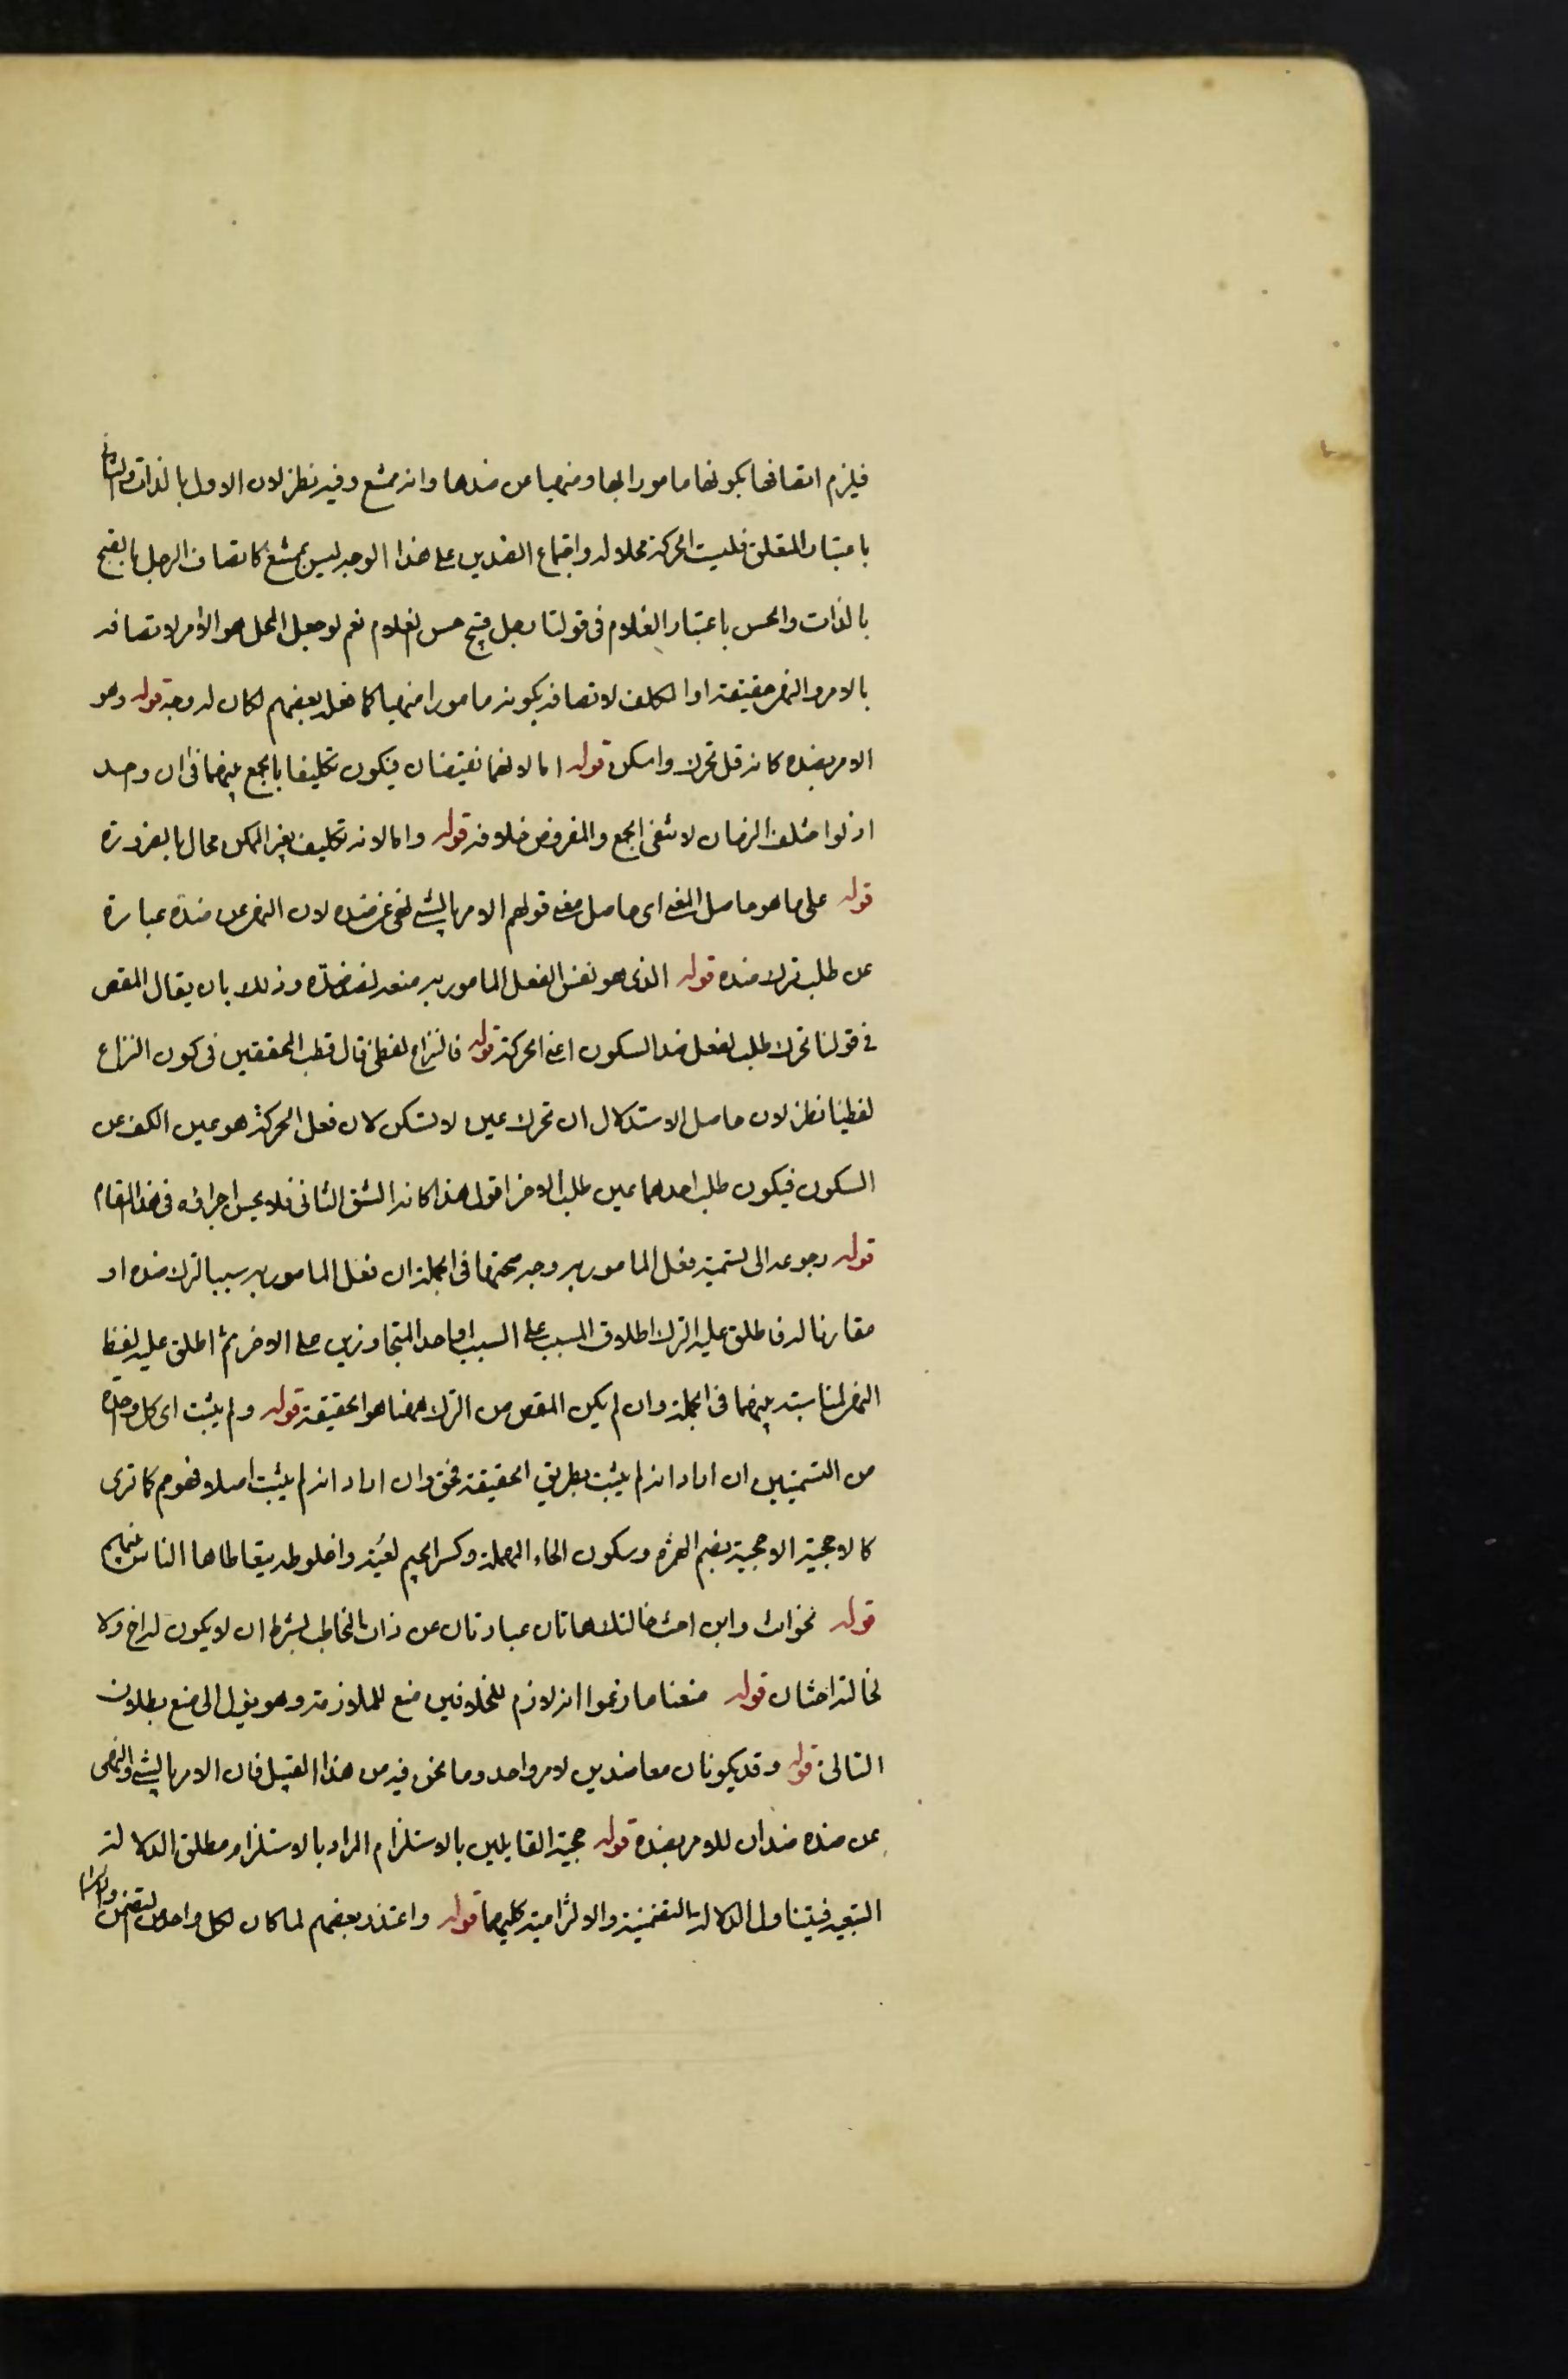 فيلزم اتصافها بكونها مامورا بها ومنهيا عن ضدها وانه ممتنع وفيه نظر لان الاول بالذات والثانى
باعتبار المتعلق فليست الحركة محلا له واجتماع الضدين على هذا الوجه ليس بممتنع كاتصاف الرجل بالقبح
بالذات والحسن باعتبار الغلام فى قولنا رجل قبيح حسن الغلام نعم لو جعل المحل هو الآمر لاتصافه
بالامر والنهى حقيقة او المكلف لاتصافه بكونه مامورا منهيا كما فعله بعضهم لكان له وجه قوله وهو
الامر بضده كانه قل تحرك واسكن قوله اما لانهما نقيضان فيكون تكليفا بالجمع بينهما فى ان واحد
اذ لو اختلف الزمان لانتفى الجمع والمفروض خلافه قوله واما لانه تكليف بغير الممكن محال بالضرورة
قوله على ما هو حاصل المعنى اى حاصل معنى قولهم الامر بالشئ نهى عن ضده لان النهى عن ضده عبارة
عن طلب ترك ضده قوله الذى هو نفس الفعل المامور به منعه لفعل ضدّه وذلك بان يقال المقص
فى قولنا تحرك طلب لفعل ضد السكون اعنى الحركة قوله فالنزاع لفظى قال قطب المحققين فى كون النزاع
لفظيا نظر لان حاصل الاستدلال ان تحرك عين لا تسكن لان فعل الحركة هو عين الكف عن
السكون فيكون طلب احدهما عين طلب الاخر اقول هذا كانه الشق الثانى فلا يحسن اجراؤه فى هذا المقام
قوله رجوعه الى تسمية فعل المامور به وجه صحتها فى الجملة ان فعل المامور به سببا لترك ضده او
مقارنا له فاطلق عليه الترك اطلاق المسبب على السبب او احد المتجاورين على الاخر ثم اطلق عليه لفظ
النهى لمناسبته بينهما فى الجملة وان لم يكن المقص من الترك ههنا هو الحقيقة قوله ولم يثبت اى كل واحدة
من التسميتين ان اراد انه لم يثبت بطريق الحقيقة فحق وان اراد انه لم يثبت اصلا فهو مم كما ترى
كالاحجية الاحجية بضم الهمزة وسكون الحاء المهملة وكسر الجيم لعبة واغلوطه يتعاطاها الناس بينهم
قوله نحو انت وابن اخت خالتك هاتان عبارتان عن ذات المخاطب بشرط ان لا يكون له اخ ولا
لخالته اختان قوله منعنا ما زعموا انه لازم للخلافين منع للملازمة وهو يؤل الى منع بطلان
التالى قوله وقد يكونان معا ضدين لامر واحد وما نحن فيه من هذا القبيل فان الامر بالشئ والنهى
عن ضده ضدان للامر بضده قوله حجية القايلين بالاستلزام المراد بالاستلزام مطلق الدلالة
التبعيه فيتناول الدلالة التضمنية والالتزامية كليهما قوله واعتذر بعضهم لما كان لكل واحد من التضمن